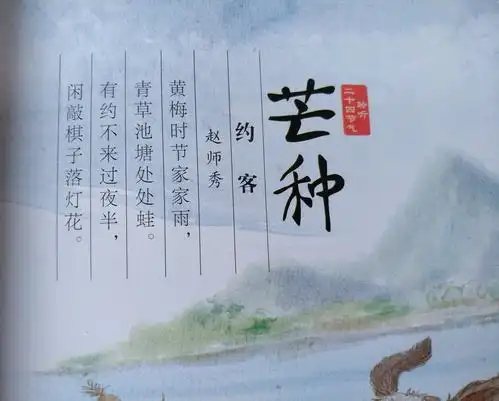 芒种
聆听
二十四节气
约客
赵师秀
黄梅时节家家雨，
青草池塘处处蛙。
有约不来过夜半，
闲敲棋子落灯花。